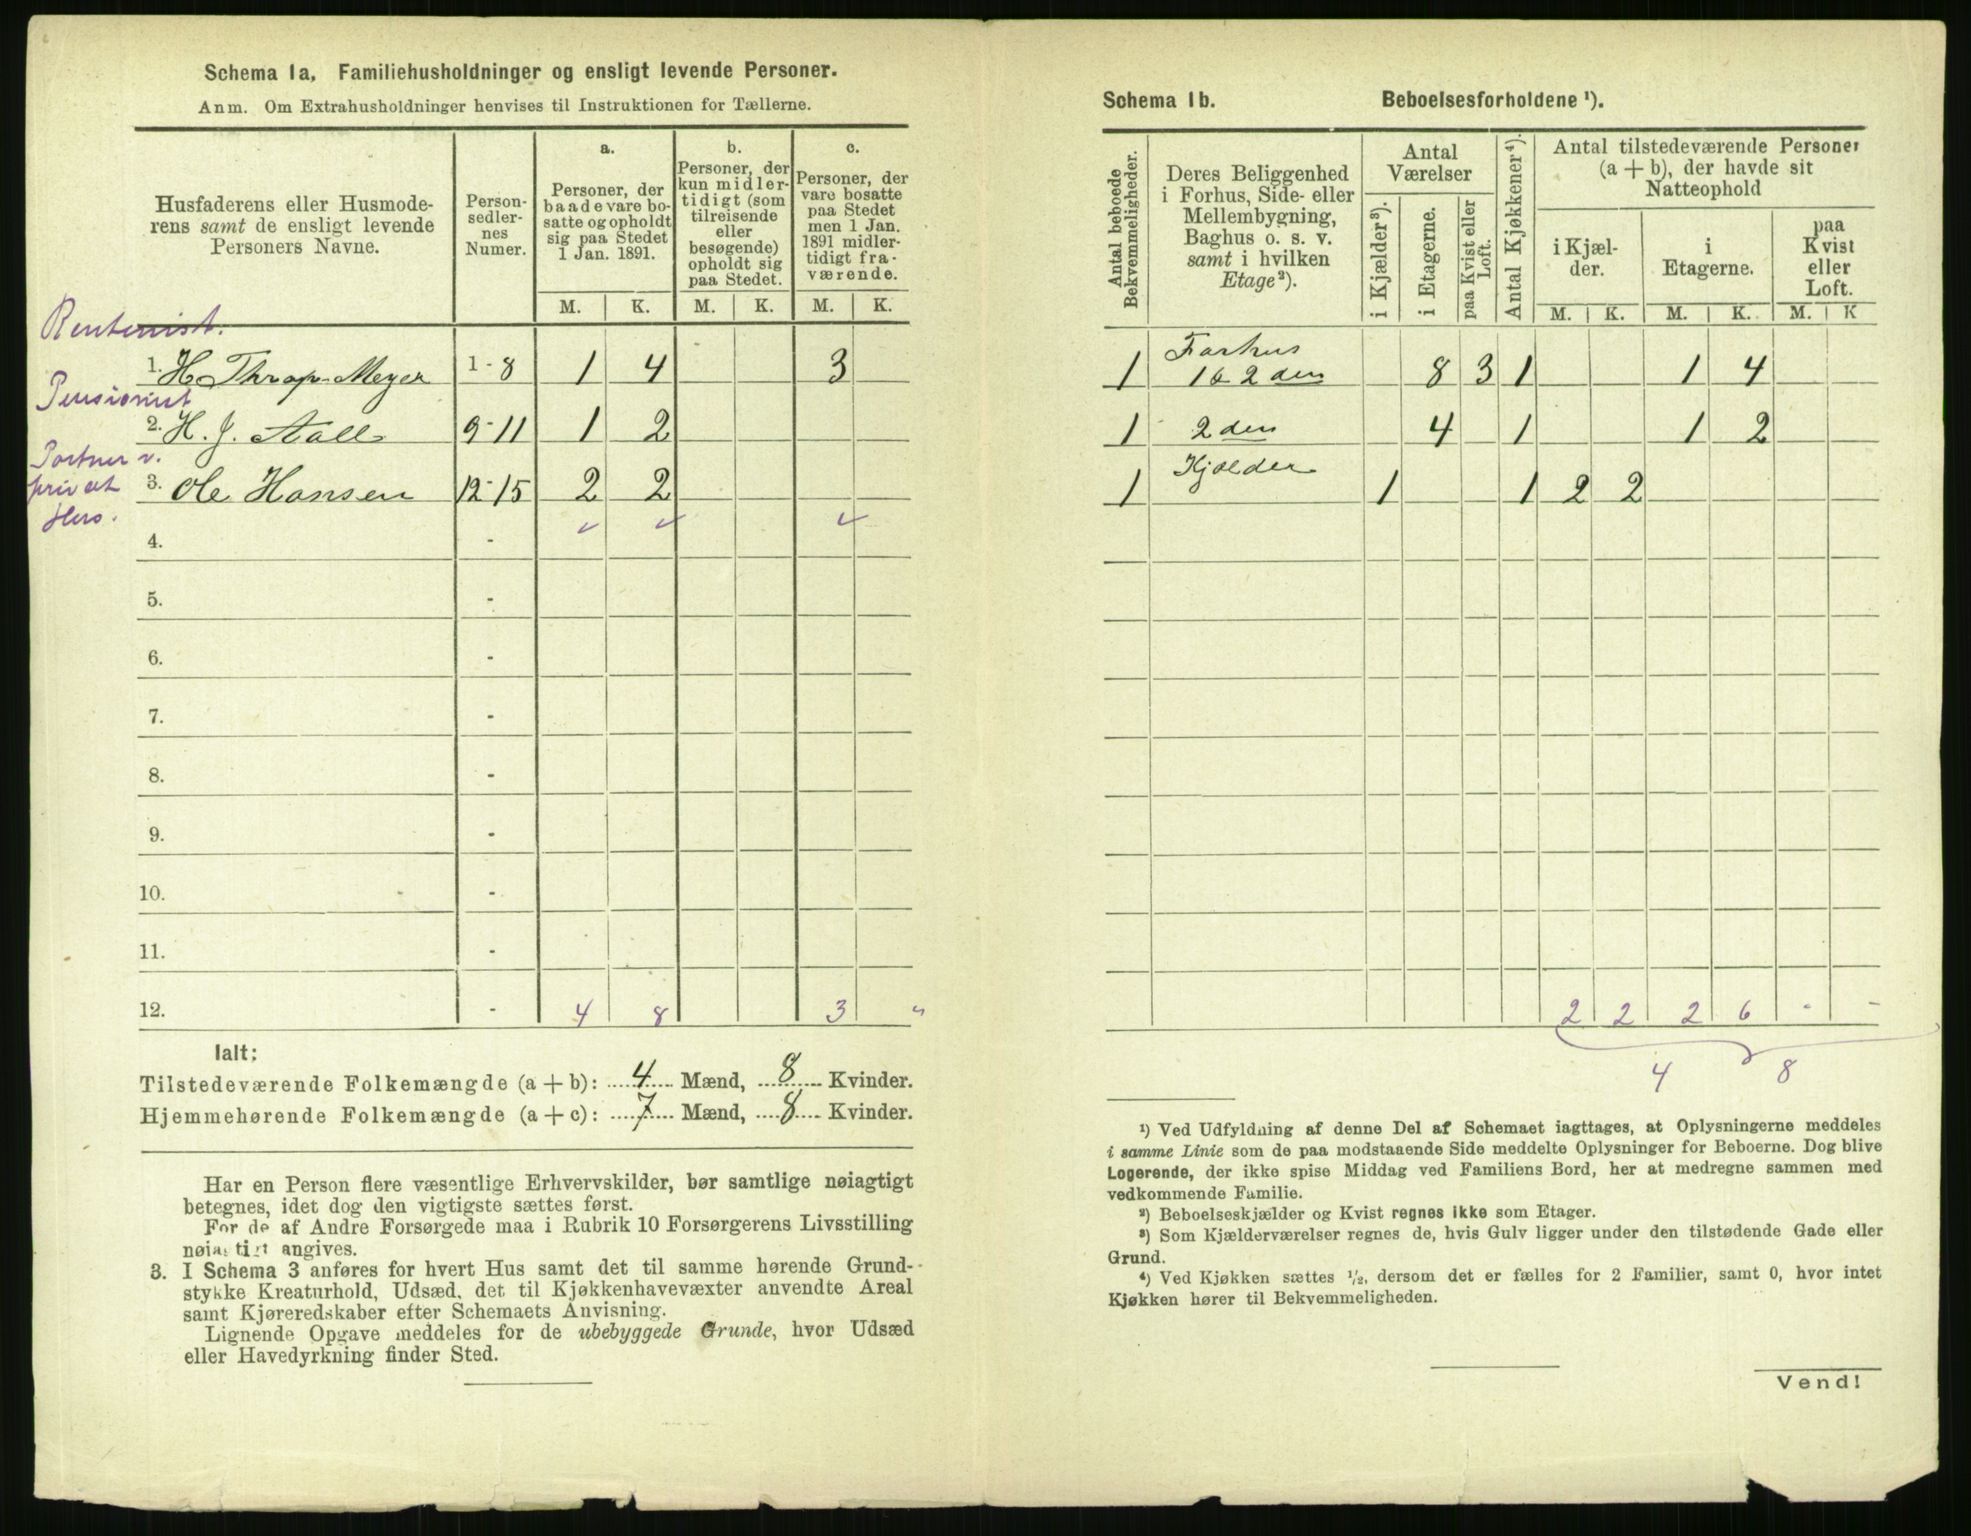 Schema 1a, Familiehusholdninger og ensligt levende Personer.
Anm. Om Extrahusholdninger henvises til Instruktionen for Tællerne.
Husfaderens eller Husmode-
rens samt de ensligt levende
Personers Navne.
Person-
sedler-
nes
Numer.
a.
Personer, der
baade vare bo-
satte og opholdt
sig paa Stedet
1 Jan. 1891.
b.
Personer, der
kun midler-
tidigt (som
tilreisende
eller
besøgende)
opholdt sig
paa Stedet.
c.
Personer, der
vare bosatte
paa Stedet
men 1 Jan.
1891 midler-
tidigt fra-
værende.
M. K. M. K. M. K.
Rentenist.
1. H. Throp-Meyer 1-8 1 4 3
Pensionist
2. H. J. Aall 9-11 1 2
Portner v.
privat
3. Ole Hansen 12-15 2 2
4. -
5. -
6. -
7. -
8. -
9. -
10. -
11. -
12. - 4 8 3 "
Ialt:
Tilstedeværende Folkemængde (a + b): 4 Mænd, 8 Kvinder.
Hjemmehørende Folkemængde (a + c): 7 Mænd, 8 Kvinder.
Har en Person flere væsentlige Erhvervskilder, bør samtlige nøiagtigt
betegnes, idet dog den vigtigste sættes først.
For de af Andre Forsørgede maa i Rubrik 10 Forsørgerens Livsstilling
nøiagtigt angives.
3. I Schema 3 anføres for hvert Hus samt det til samme hørende Grund-
stykke Kreaturhold, Udsæd, det til Kjøkkenhavevæxter anvendte Areal
samt Kjøreredskaber efter Schemaets Anvisning.
Lignende Opgave meddeles for de ubebyggede Grunde, hvor Udsæd
eller Havedyrkning finder Sted.
Schema 1b. Beboelsesforholdene ¹).
Antal beboede
Bekvemmeligheder.
Deres Beliggenhed
i Forhus, Side- eller
Mellembygning,
Baghus o. s. v.
samt i hvilken
Etage²).
Antal
Værelser
i Kjælder³).
i Etagerne.
paa Kvist eller
Loft.
Antal Kjøkkener⁴).
Antal tilstedeværende Personer
(a + b), der havde sit
Natteophold
i Kjæl-
der.
i
Etagerne.
paa
Kvist
eller
Loft.
M. K. M. K. M. K
1 Forhus
1 & 2 den 8 3 1 1 4
1 2 den 4 1 1 2
1 Kjælder 1 1 2 2
2 2 2 6 - -
4 8
¹) Ved Udfyldning af denne Del af Schemaet iagttages, at Oplysningerne meddeles
i samme Linie som de paa modstaaende Side meddelte Oplysninger for Beboerne. Dog blive
Logerende, der ikke spise Middag ved Familiens Bord, her at medregne sammen med
vedkommende Familie.
²) Beboelseskjælder og Kvist regnes ikke som Etager.
³) Som Kjælderværelser regnes de, hvis Gulv ligger under den tilstødende Gade eller
Grund.
⁴) Ved Kjøkken sættes ½, dersom det er fælles for 2 Familier, samt 0, hvor intet
Kjøkken hører til Bekvemmeligheden.
Vend!